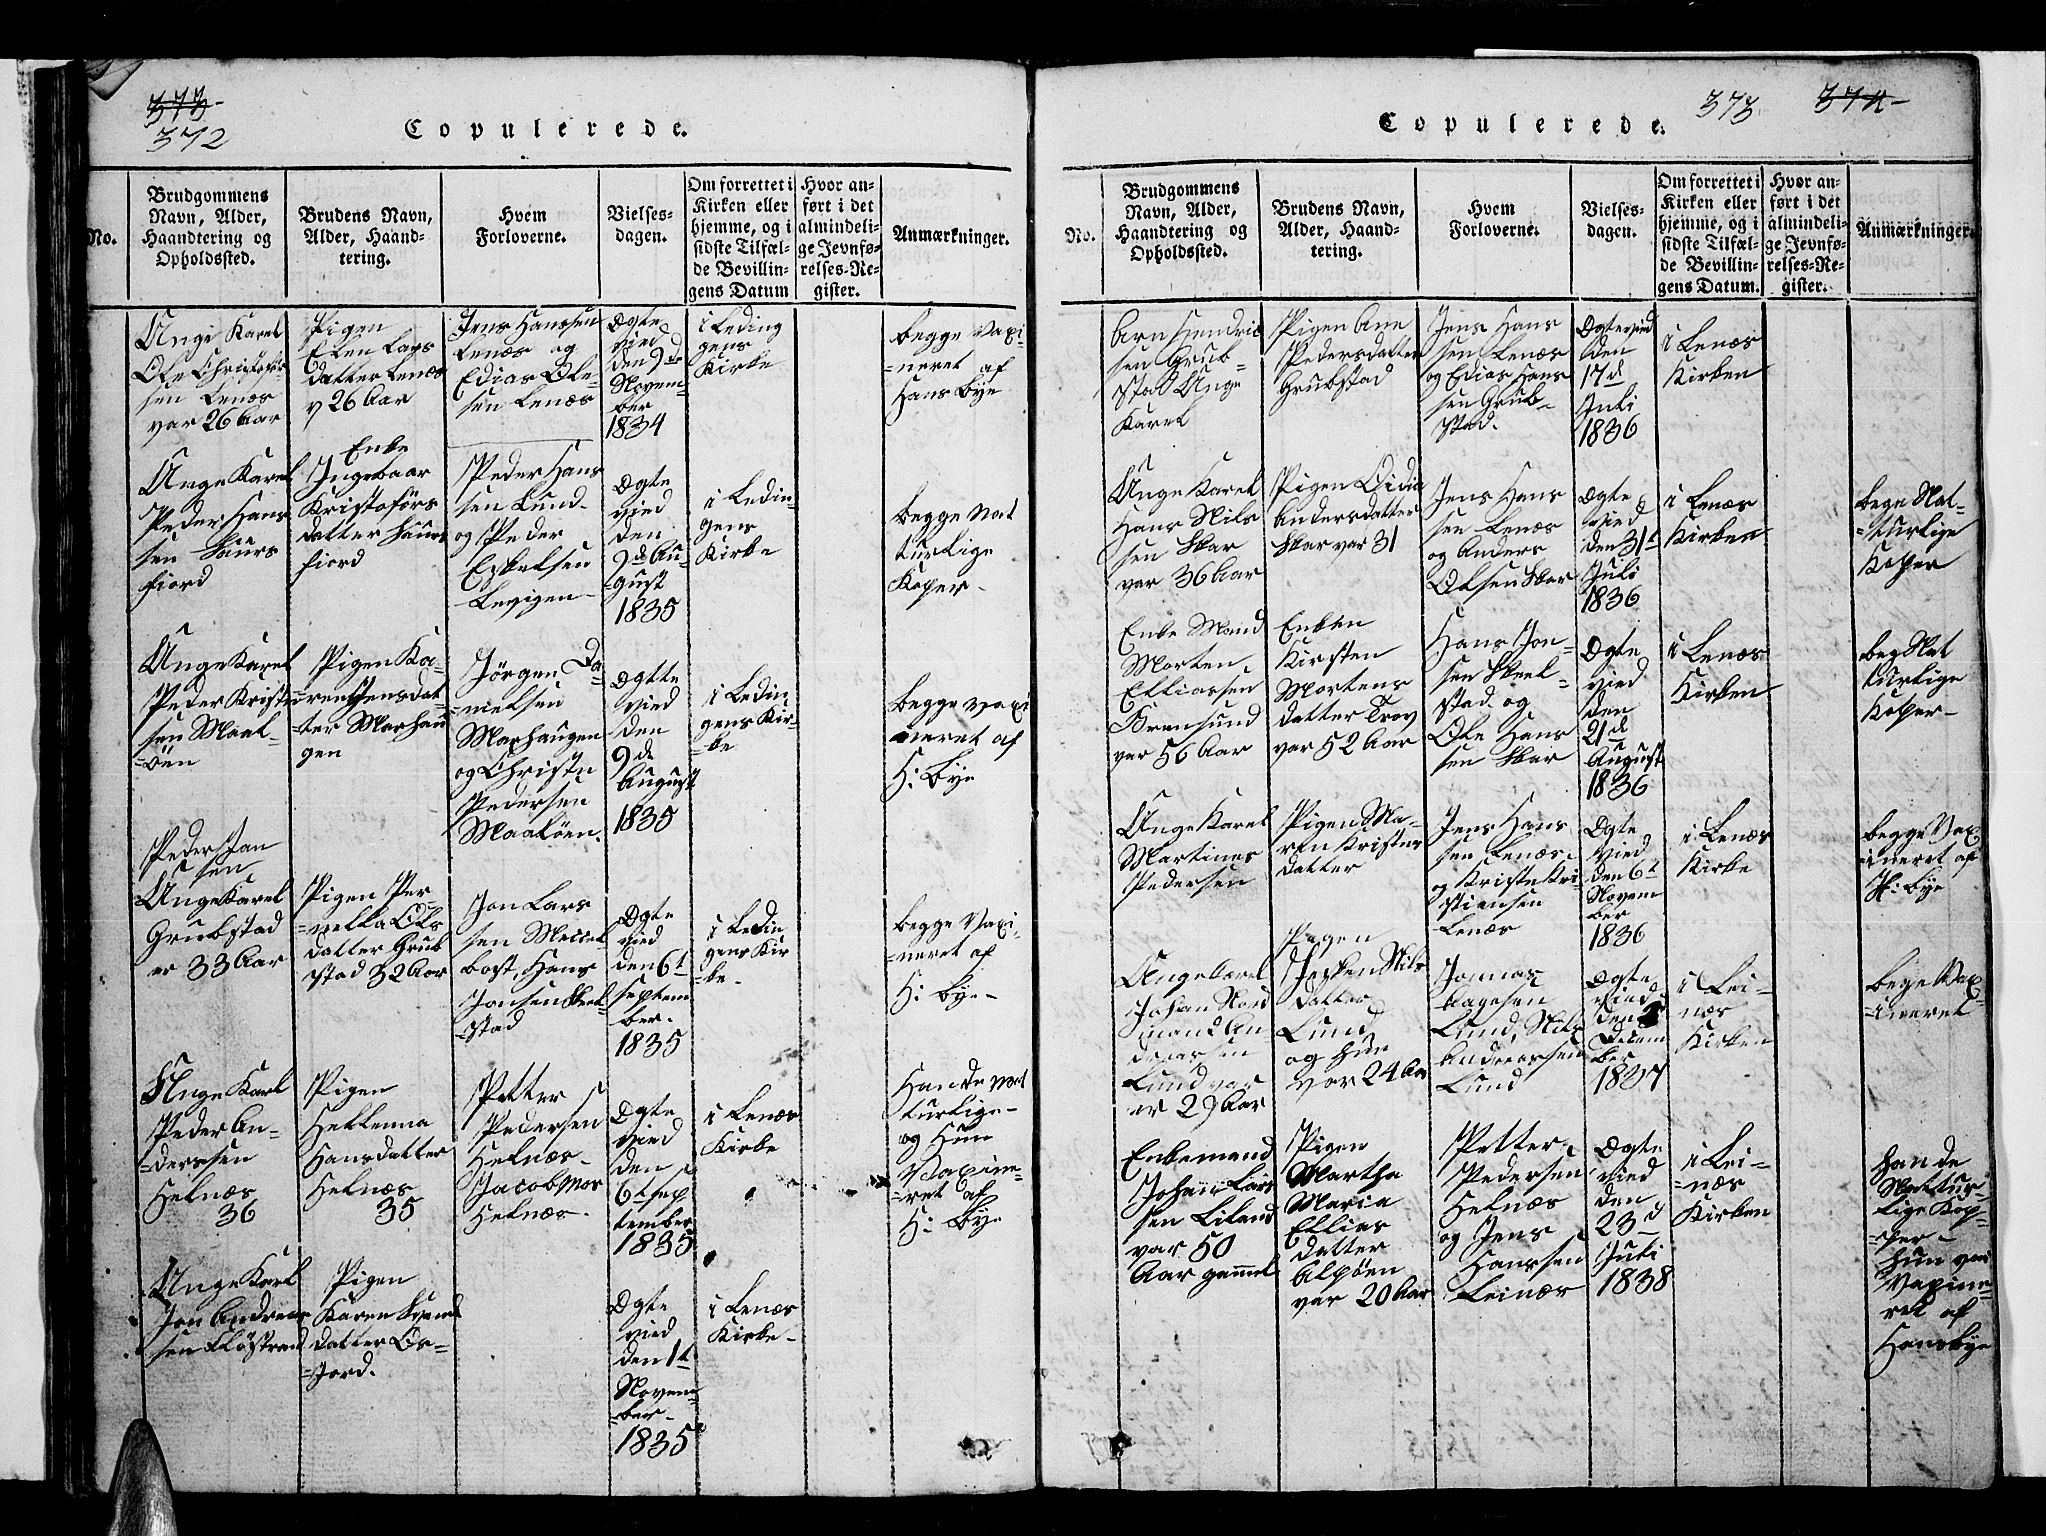 373
372
Copulerede.
No.
Brudgommens
Navn, Alder,
Haandtering og
Opholdssted.
Brudens Navn,
Alder, Haand-
tering.
Hvem
Forloverne.
Vielses-
dagen.
Om forrettet i
Kirken eller
hjemme, og i
sidste Tilfæl-
de Bevillin-
gens Datum
Hvor an-
ført i det
almindeli-
ge Jevnfø-
relses-Re-
gister.
Anmærkninger.
Unge Karel
Ole Christofer-
sen Lenæs
var 26 Aar
Pigen
Elen Lars
datter Lenæs
v 26 Aar
Jens Hanssen
Lenæs og
Edias Ole-
sen Lenæs
Ægte
vied
den 9de
Novem-
ber
1834
i Leding
gens
Kirke
begge vaxi-
neret af
Hans Bye
Unge Karel
Peder Hans
sen Saurs
fiord
Enke
Ingebaar
Kristofórs
datter Saurs
fiord
Peder Hans
sen Lund
og Peder
Eskelsen
Levigen
Ægte
vied
den
9de Au-
gust
1835
i Ledin-
gens
Kirke
begge Nat
turlige
Koper
Unge Karel
Peder Kristen
sen Maal-
öen
Pigen Ka-
ren Jensdat
ter Marhau
gen
Jörgen Da-
nielsen
Marhaugen
og Christen
Pedersen
Maalöen.
Ægtte
vied
den
9de
August
1835
i Ledin
gens Kir-
ke
begge vaxi
neret af
H: Bye
Peder Jan
sen
Unge Karel
Grubstad
er 33 Aar
Pigen Per-
nella Ols
datter Grub
stad 32 Aar
Jon Lars
sen Meissel
bost, Hans
Jonsen Skeel
stad
Ægte
vied
den 6t
Septem
ber.
1835
i Ledin
gens Kir
ke.
begge Vaxi-
neret af
H: bye
Unge Karl
Peder An-
derssen
Helnæs
36
Pigen
Hellenna
Hansdatter
Helnæs
35
Petter
Pedersen
Helnæs
Jacob Mos
Helnæs
Ægte
vied
den
6t Sep
tember
1835
i Lenæs
Kirke
Hande nat
turlige
og Hun
Vaxine-
ret af
H: Bye
Unge Karl
Jon Andreas
sen Flöstrand
Pigen
Karen Svends
datter Os-
jord.
Ægte
vied
den 1t
Novem-
ber
1835
i Lenæs
Kirke
373
374
Copulerede.
No.
Brudgommens
Navn, Alder,
Haandtering og
Opholdssted.
Brudens Navn,
Alder, Haand-
tering.
Hvem
Forloverne.
Vielses-
dagen.
Om forrettet i
Kirken eller
hjemme, og i
sidste Tilfæl-
de Bevillin-
gens Datum.
Hvor an-
ført i det
almindeli-
ge Jevnfø-
relses-Re-
gister.
Anmærkninger.
Arn Hendric
sen Grub-
stad Unge
Karel
Pigen Ane
Pedersdatter
Grubstad
Jens Hans
sen Lenæs
og Edias Hans
sen Grub-
stad.
Ægte vied
den
17d
Juli
1836
i Lenæs
Kirken
Unge Karel
Hans Nils
sen Skar
var 36 Aar
Pigen
Andersdatter
Skar var 31
Jens Hans
sen Lenæs
og Anders
Olsen Skar
Ægte
vied
den 31t
Juli
1836
i Lenæs
Kirken
bege Nat-
turlige
Koper
Enke Mand
Morten
Elliassen
Grensund
var 56 Aar
Enken
Kirsten
Mortens
datter Trov
var 52 Aar
Hans Jon-
sen Skeel-
stad og
Ole Hans
sen Skar
Ægte
vied
den
21d
August
1836
i Lenæs
Kirken
beg Nat
turlige
Koper
Unge Karel
Martines
Pedersen
Pigen Ma-
ren Kristens
datter
Jens Hans
sen Lenæs
og Kriste Kri-
stiensen
Lenæs
Ægte
vied
den 6t
Novem
ber
1836
i Lenæs
Kirke
begge Vax
ineret af
H: Bye
Unge Karel
Johan Nord
mand An
dreassen
Lund var
er 29 Aar
Pigen
Nils
datter
Lund
og hun
var 24 Aar
Jonnas
Aagesen
Lund, Nils
Andreassen
Lund
Ægte
vied
den
Decem
ber
1837
i Lei-
næs
Kirken
bege Vax-
ineret
Enkemand
Johan Lars
sen Liland
var 50
Aar gammel
Pigen
Martha
Maria
Ellias
datter
Alpöen
var 20 Aar
Petter
Pedersen
Helnæs
og Jens
Hanssen
Leinæs
Ægte
vied
den
23d
Juli
1838
i Lei-
næs
Kirken
han de
Nattur-
lige Kop-
per
hun var
Vaxine-
ret af
Hans bye